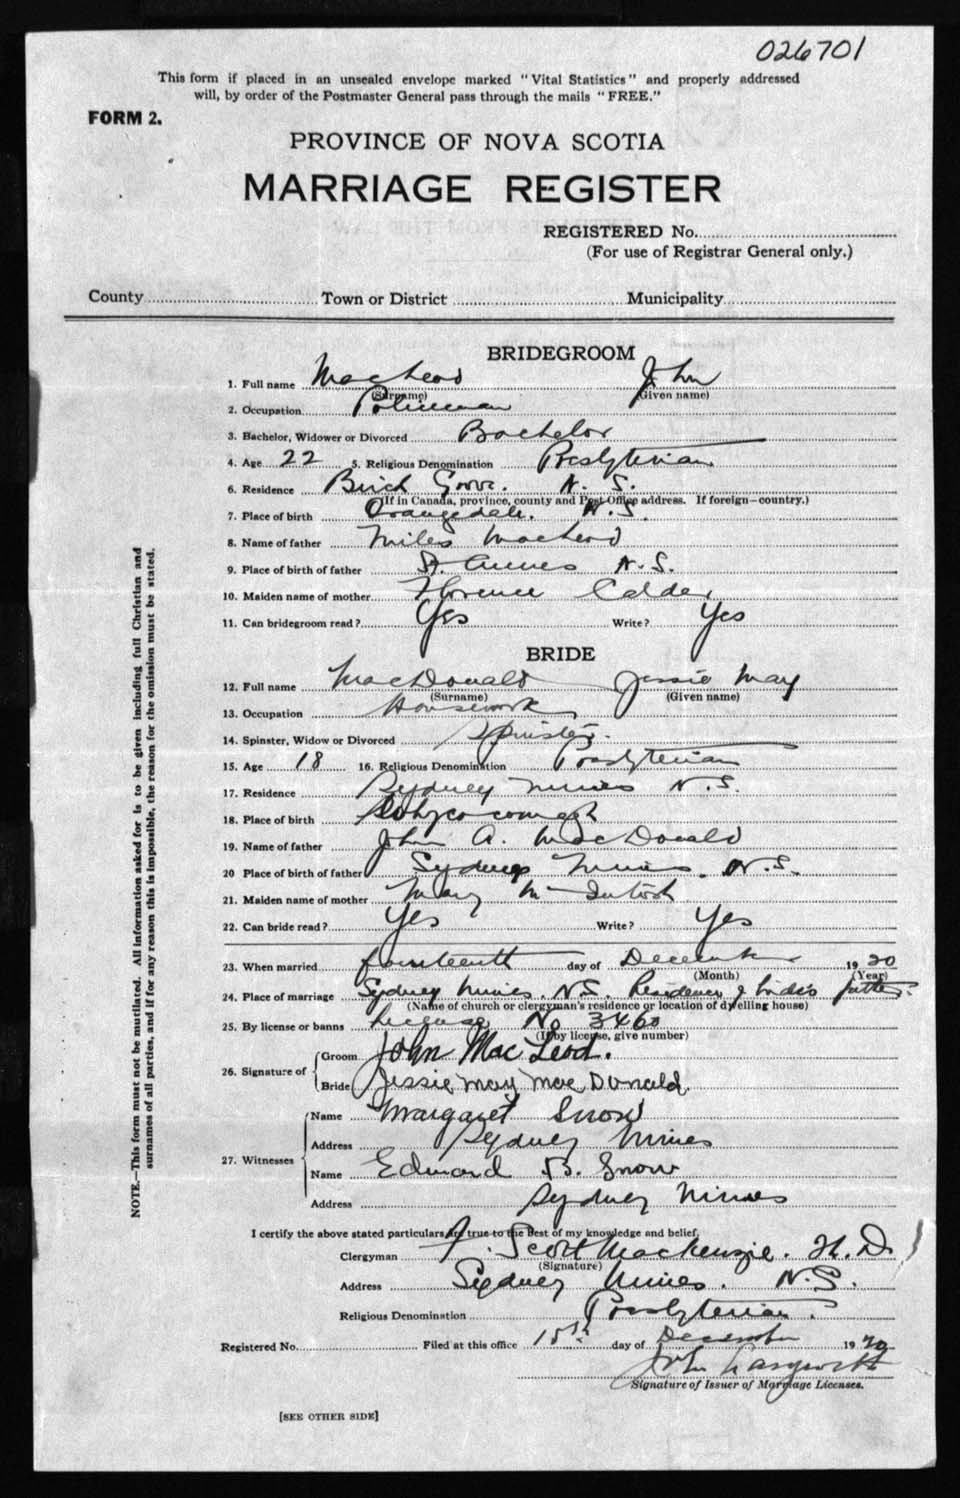 026701
This form if placed in an unsealed envelope marked "Vital Statistics" and properly addressed
will, by order of the Postmaster General pass through the mails "FREE."
FORM 2.
PROVINCE OF NOVA SCOTIA
MARRIAGE REGISTER
REGISTERED No.
(For use of Registrar General only.)
County Town or District Municipality
BRIDEGROOM
1. Full name MacLeod John
(Surname) (Given name)
2. Occupation Policeman
3. Bachelor, Widower or Divorced Bachelor
4. Age 22 5. Religious Denomination Presbyterian
6. Residence Birch Grove. N. S.
(If in Canada, province, county and Post Office address. If foreign—country.)
7. Place of birth Orangedale. N. S.
8. Name of father Miles MacLeod
9. Place of birth of father St. Annes N. S.
10. Maiden name of mother Florence Calder
11. Can bridegroom read? Yes Write? Yes
BRIDE
12. Full name MacDonald Jessie May
(Surname) (Given name)
13. Occupation Housework
14. Spinster, Widow or Divorced Spinster.
15. Age 18 16. Religious Denomination Presbyterian
17. Residence Sydney Mines N. S.
18. Place of birth
19. Name of father John A. MacDonald
20 Place of birth of father Sydney Mines. N. S.
21. Maiden name of mother Mary McIntosh
22. Can bride read? Yes Write? Yes
23. When married fourteenth day of December 1920
(Month) (Year)
24. Place of marriage Sydney Mines. N. S. Residence of bride's father.
(Name of church or clergyman's residence or location of dwelling house)
25. By license or banns License No 3460
(If by license, give number)
26. Signature of Groom John MacLeod.
Bride Jessie May MacDonald.
27. Witnesses Name Margaret Snow
Address Sydney Mines
Name Edward B. Snow
Address Sydney Mines
I certify the above stated particulars are true to the best of my knowledge and belief.
Clergyman Scott Mackenzie.
(Signature)
Address Sydney Mines. N. S.
Religious Denomination Presbyterian.
Registered No. Filed at this office 15th day of December 1920
John
Signature of Issuer of Marriage Licenses.
[SEE OTHER SIDE]
NOTE.—This form must not be mutilated. All information asked for is to be given including full Christian and
surnames of all parties, and if for any reason this is impossible, the reason for the omission must be stated.